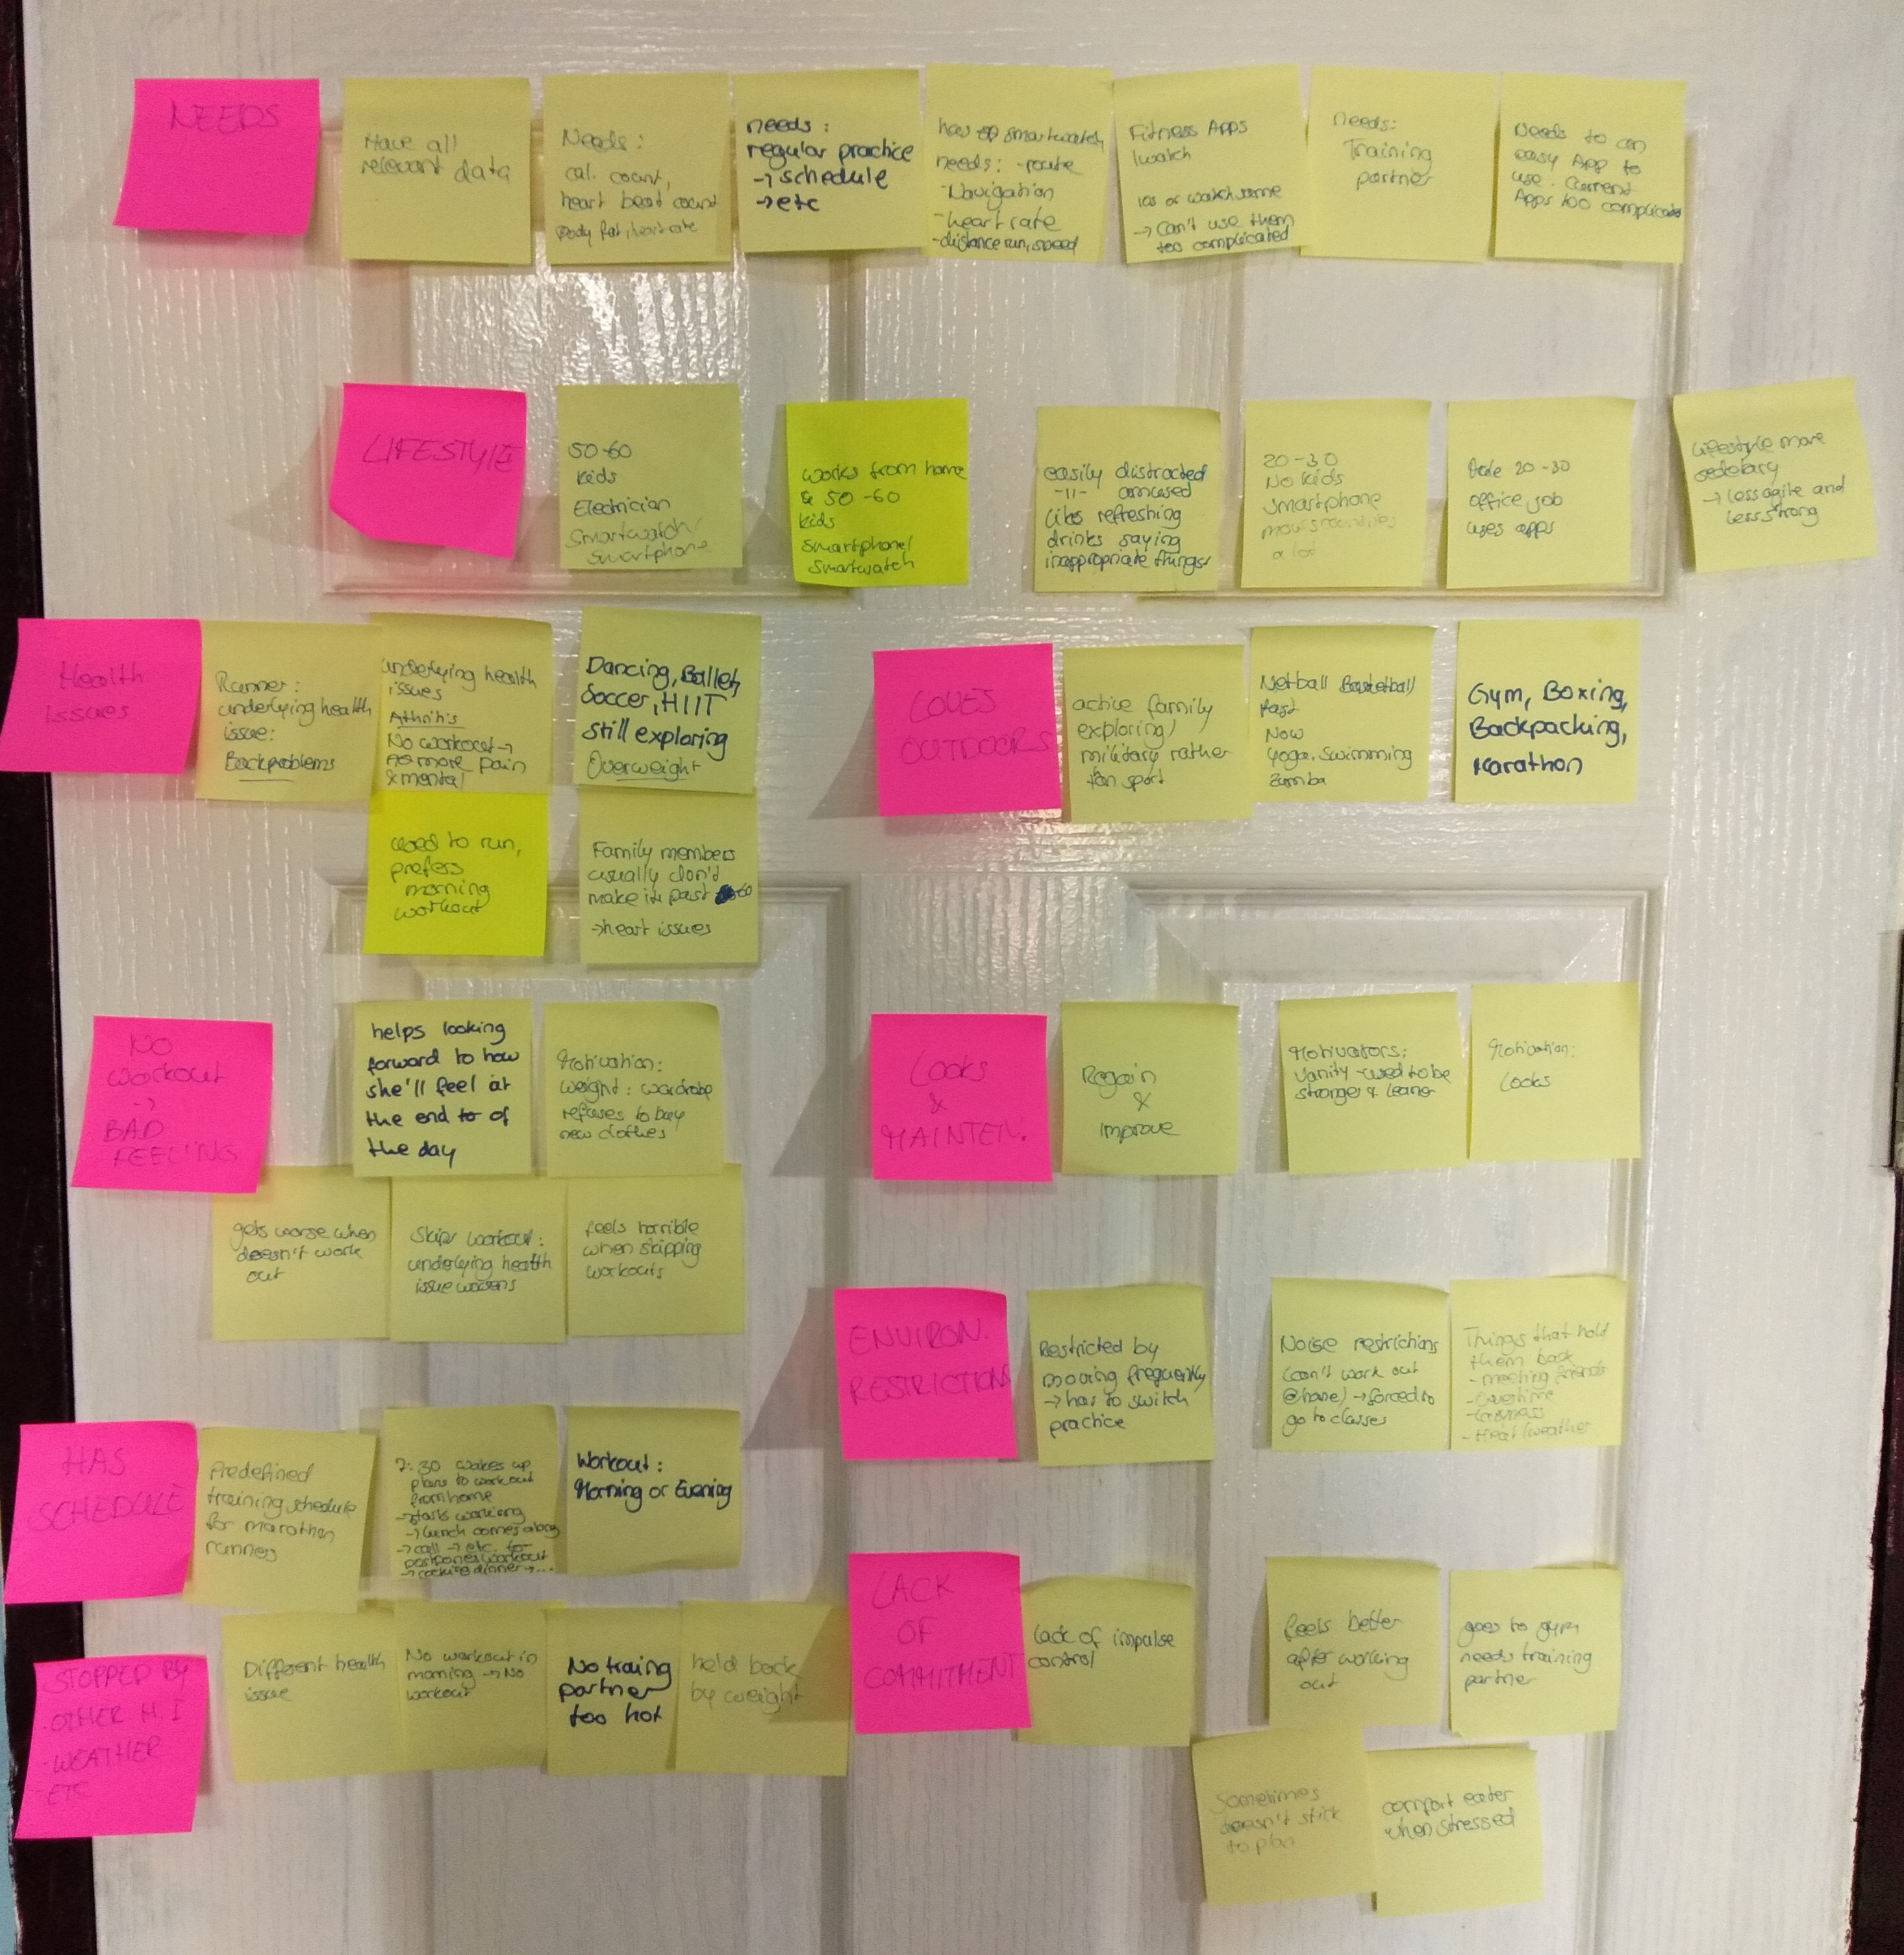 NEEDS
Have all
relevant data
Needs:
cal. count,
heart beat count
body fat, heart rate
needs:
regular practice
→ schedule
→ etc
has smartwatch
needs: - route
- Navigation
- heart rate
- distance run, speed
Fitness Apps
iwatch
→ can't use them
too complicated
needs:
Training
partner
Needs to an
easy App to
use. Current
Apps too complicated
LIFESTYLE
50-60
Kids
Electrician
Smartwatch/
Smartphone
works from home
& 50-60
kids
Smartphone/
Smartwatch
easily distracted
-11- amused
likes refreshing
drinks saying
inappropriate things
20-30
No kids
Smartphone
moves countries
a lot
20-30
office job
uses apps
Lifestyle more
sedetary
→ less agile and
less strong
Health
issues
Runner:
underlying health
issue:
Backproblems
underlying health
issues
Athritis
No workout →
more pain
& mental
Dancing, Ballet,
Soccer, HIIT
still exploring
Overweight
used to run,
prefers
morning
workout
Family members
usually don't
make it past 60
→ heart issues
LOVES
OUTDOORS
active family
exploring/
military rather
than sport
Netball Basketball/
past
Now
Yoga, Swimming
Zumba
Gym, Boxing,
Backpacking,
Marathon
NO
WORKOUT
→
BAD
FEELING
helps looking
forward to how
she'll feel at
the end to of
the day
Motivation:
weight: wardrobe
refuses to buy
new clothes
gets worse when
doesn't work
out
Skips workout:
underlying health
issue worsens
feels horrible
when skipping
workouts
LOOKS
&
MAINTEN.
Regain
&
improve
Motivators:
Vanity - used to be
stronger & leaner
Motivation:
Looks
ENVIRON.
RESTRICTIONS
Restricted by
moving frequently
→ has to switch
practice
Noise restrictions
(can't work out
@home) → forced to
go to classes
Things that hold
them back
- meeting friends
- overtime
- laziness
- Heat/weather
HAS
SCHEDULE
Predefined
training schedule
for marathon
runners
7:30 wakes up
plans to work out
from home
→ starts working
→ lunch comes along
→ call → etc.
postpones workout
→ cooking dinner → ...
Workout:
Morning or Evening
STOPPED BY
- OTHER H. I
- WEATHER
- ETC
Different health
issue
No workout in
morning → No
workout
No traing
partner
too hot
held back
by weight
LACK
OF
COMMITMENT
lack of impulse
control
feels better
after working
out
goes to gym
needs training
partner
Sometimes
doesn't stick
to plan
comfort eater
when stressed